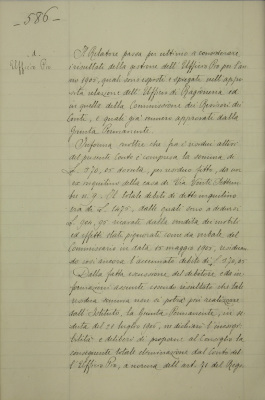 - 586 -
1.
Ufficio Pio.
Il Relatore passa per ultimo a considerare
i risultati della gestione dell'Ufficio Pio per l'an-
no 1905, quali sono esposti e spiegati nell'appo-
sita relazione dell'Ufficio di Ragioneria ed
in quella della Commissione dei Revisori dei
Conti, e quali già vennero approvati dalla
Giunta Permanente.
Informa inoltre che fra i residui attivi
del presente Conto è compresa la somma di
L. 270,05 dovuta, per residuo fitto, da un
ex inquilino della casa di Via Venti Settem-
bre n. 9. Il totale debito di detto inquilino
era di L. 1475, delle quali sono a dedursi
L. 204,95 ricavate dalla vendita dei mobili
ed effetti stati pignorati come da verbale del
Commissario in data 05 maggio 1905, residuan-
do così ancora l'accennato debito di L. 270,05
Dalla fatta escussione del debitore e da in-
formazioni assunte essendo risultato che tale
residua somma non si potrà più realizzare
dall'Istituto, la Giunta Permanente, in se-
duta del 21 luglio 1905, ne dichiarò l'inesigi-
bilità e deliberò di proporre al Consiglio la
conseguente totale eliminazione dal Conto del-
l'Ufficio Pio, a norma dell'art. 31 del Rego-